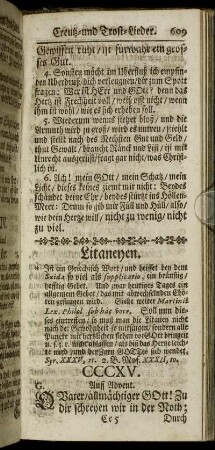 Creutz- und Trost-Lieder. 609
Gewissen ruht / ist fürwahr ein gros-
ses Gut.
4. Sonsten möcht im Uberfluß ich empfin-
den Uberdruß / dich verleugnen / dir zum Spott
fragen: Wer ist HErr und GOtt? denn das
Hertz ist Frechheit voll / weiß oft nicht / wenn
ihm ist wohl / wie es sich erheben soll.
5. Wiederum wanns stehet bloß / und die
Armuth wird zu groß / wird es untreu / stiehlt
und stellt nach des Nechsten Gut und Geld /
thut Gewalt / braucht Ränck und List / ist mit
Unrecht ausgerüst / fragt gar nicht / was Christ-
lich ist.
6. Ach! mein GOtt / mein Schatz / mein
Licht / dieses keines ziemt mir nicht: Beydes
schändet deine Ehr / beydes stürtzt ins Höllen-
Meer: Drum so gib mir Füll und Hüll / also /
wie dein Hertze will / nicht zu wenig / nicht
zu viel.
Litaneyen.
Ist ein Griechisch Wort / und heisset bey dem
Suida so viel als supplicatio, ein brünstig /
hefftig Gebet. Und war heutiges Tages ein
allgemein Gebet / das mit abwechselnden Chö-
ren gesungen wird. Siehe weiter Martinii
Lex. Philol. sub hac voce. Soll nun die-
ses eintreffen / so muß man die Litaney nicht
nach der Gewohnheit so mitsingen / sondern alle
Puncte mit hertzlichen
Syr. XXXV, 21. 2. B. Mos. XXXII, 10.
CCCXV.
G. Auffs Advent.
O Vater / allmächtiger GOtt! Zu
dir schreyen wir in der Noth;
Cc 5 Durch